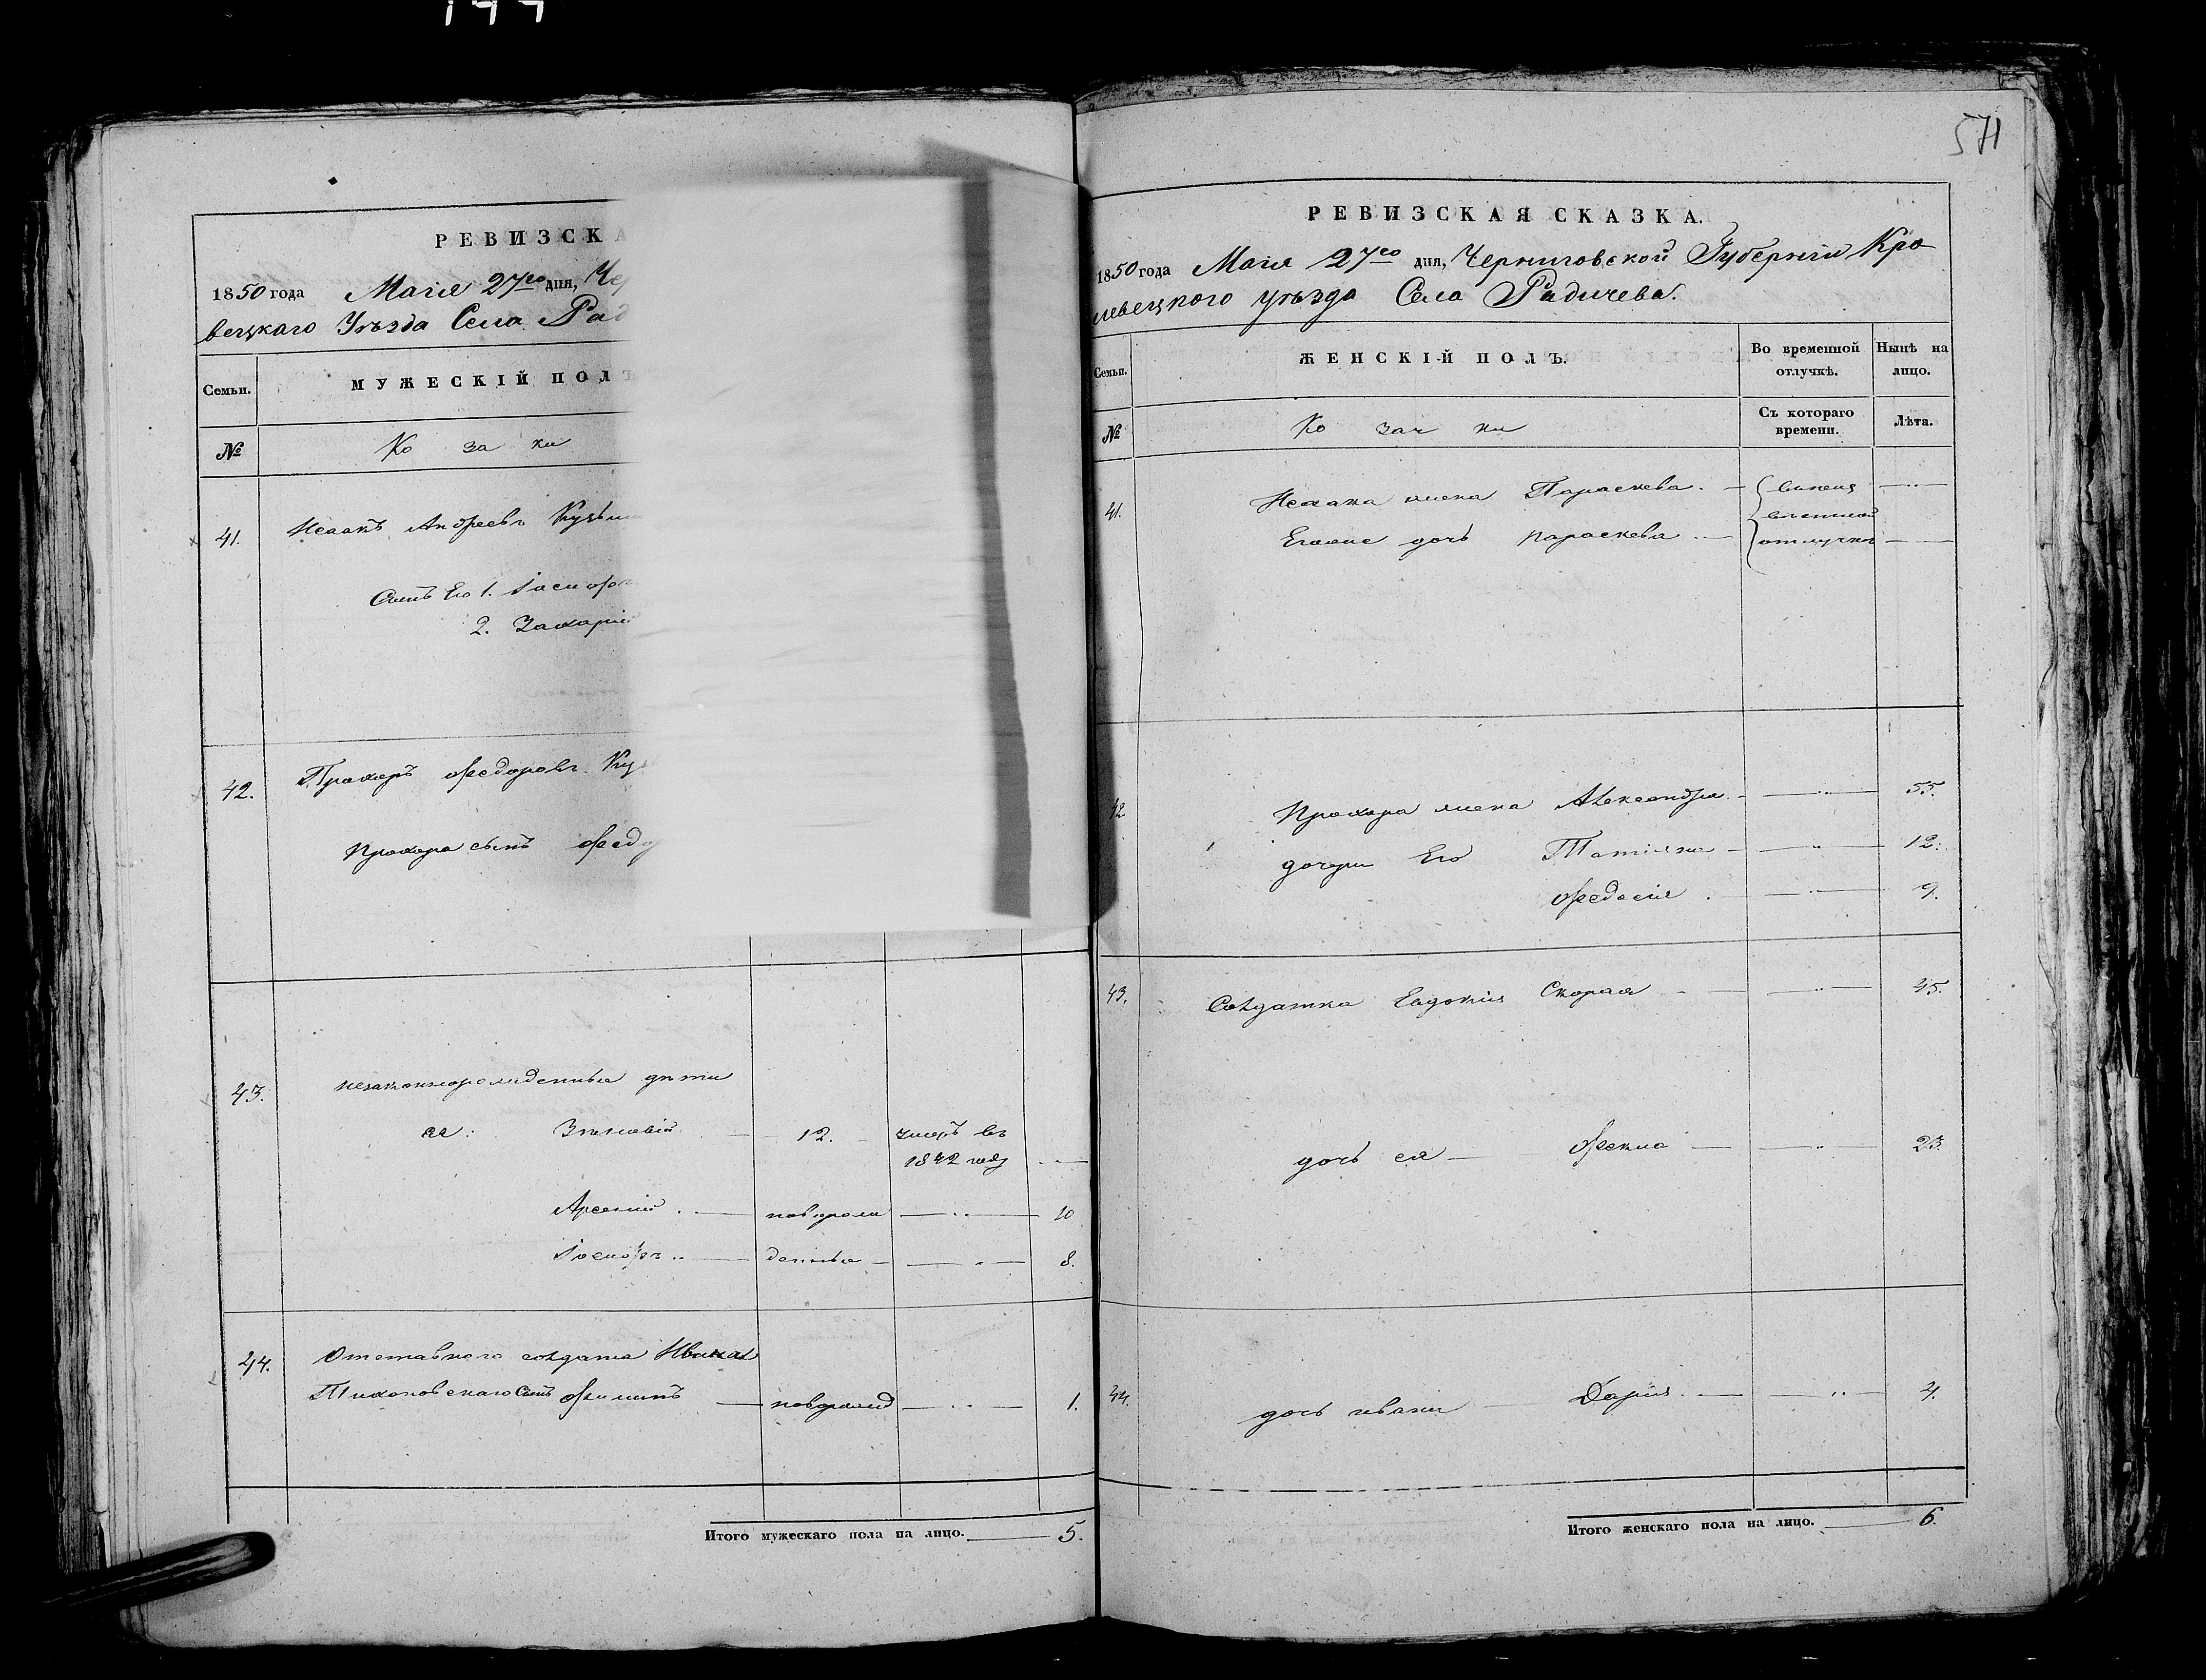 РЕВИЗСКА
1850 года Маія 27го дня, Че
вецкаго Уѣзда Села Рад
Семьи. МУЖЕСКІЙ ПОЛЪ
№ Ко за ки
41. Исаакъ Андреевъ Кузьм
Сынъ Его 1. Іосифъ
2. Захарій
42. Прохоръ Федоровъ Куз
Прохора сынъ Федо
43. незаконнорожденные дѣти
ея: Зиновій 12. умеръ въ
1842 году
Арсеній новорож 10
Іосифъ денные 8.
44. Отставнаго солдата Ивана
Тихоновскаго Сынъ Филипъ новорожд 1.
Итого мужескаго пола на лицо. 5.
571
РЕВИЗСКАЯ СКАЗКА.
1850 года Маія 27го дня, Черниговской Губерніи Кро
левецкого уѣзда Села Радичева.
Семьи. ЖЕНСКІЙ ПОЛЪ. Во временной отлучкѣ. Нынѣ на лицо.
№ Ко зач ки Съ котораго времени. Лѣта.
41. Исаака жена Параскева.
дочь Параскева отлучкѣ
42 Прохора жена Александра 55.
дочери Его Татіяна 12.
Федосія 9.
43. Солдатка Евдокія Скорая 45.
дочь ея Фекла 23.
44. дочь ивана Дарія 4.
Итого женскаго пола на лицо. 6.